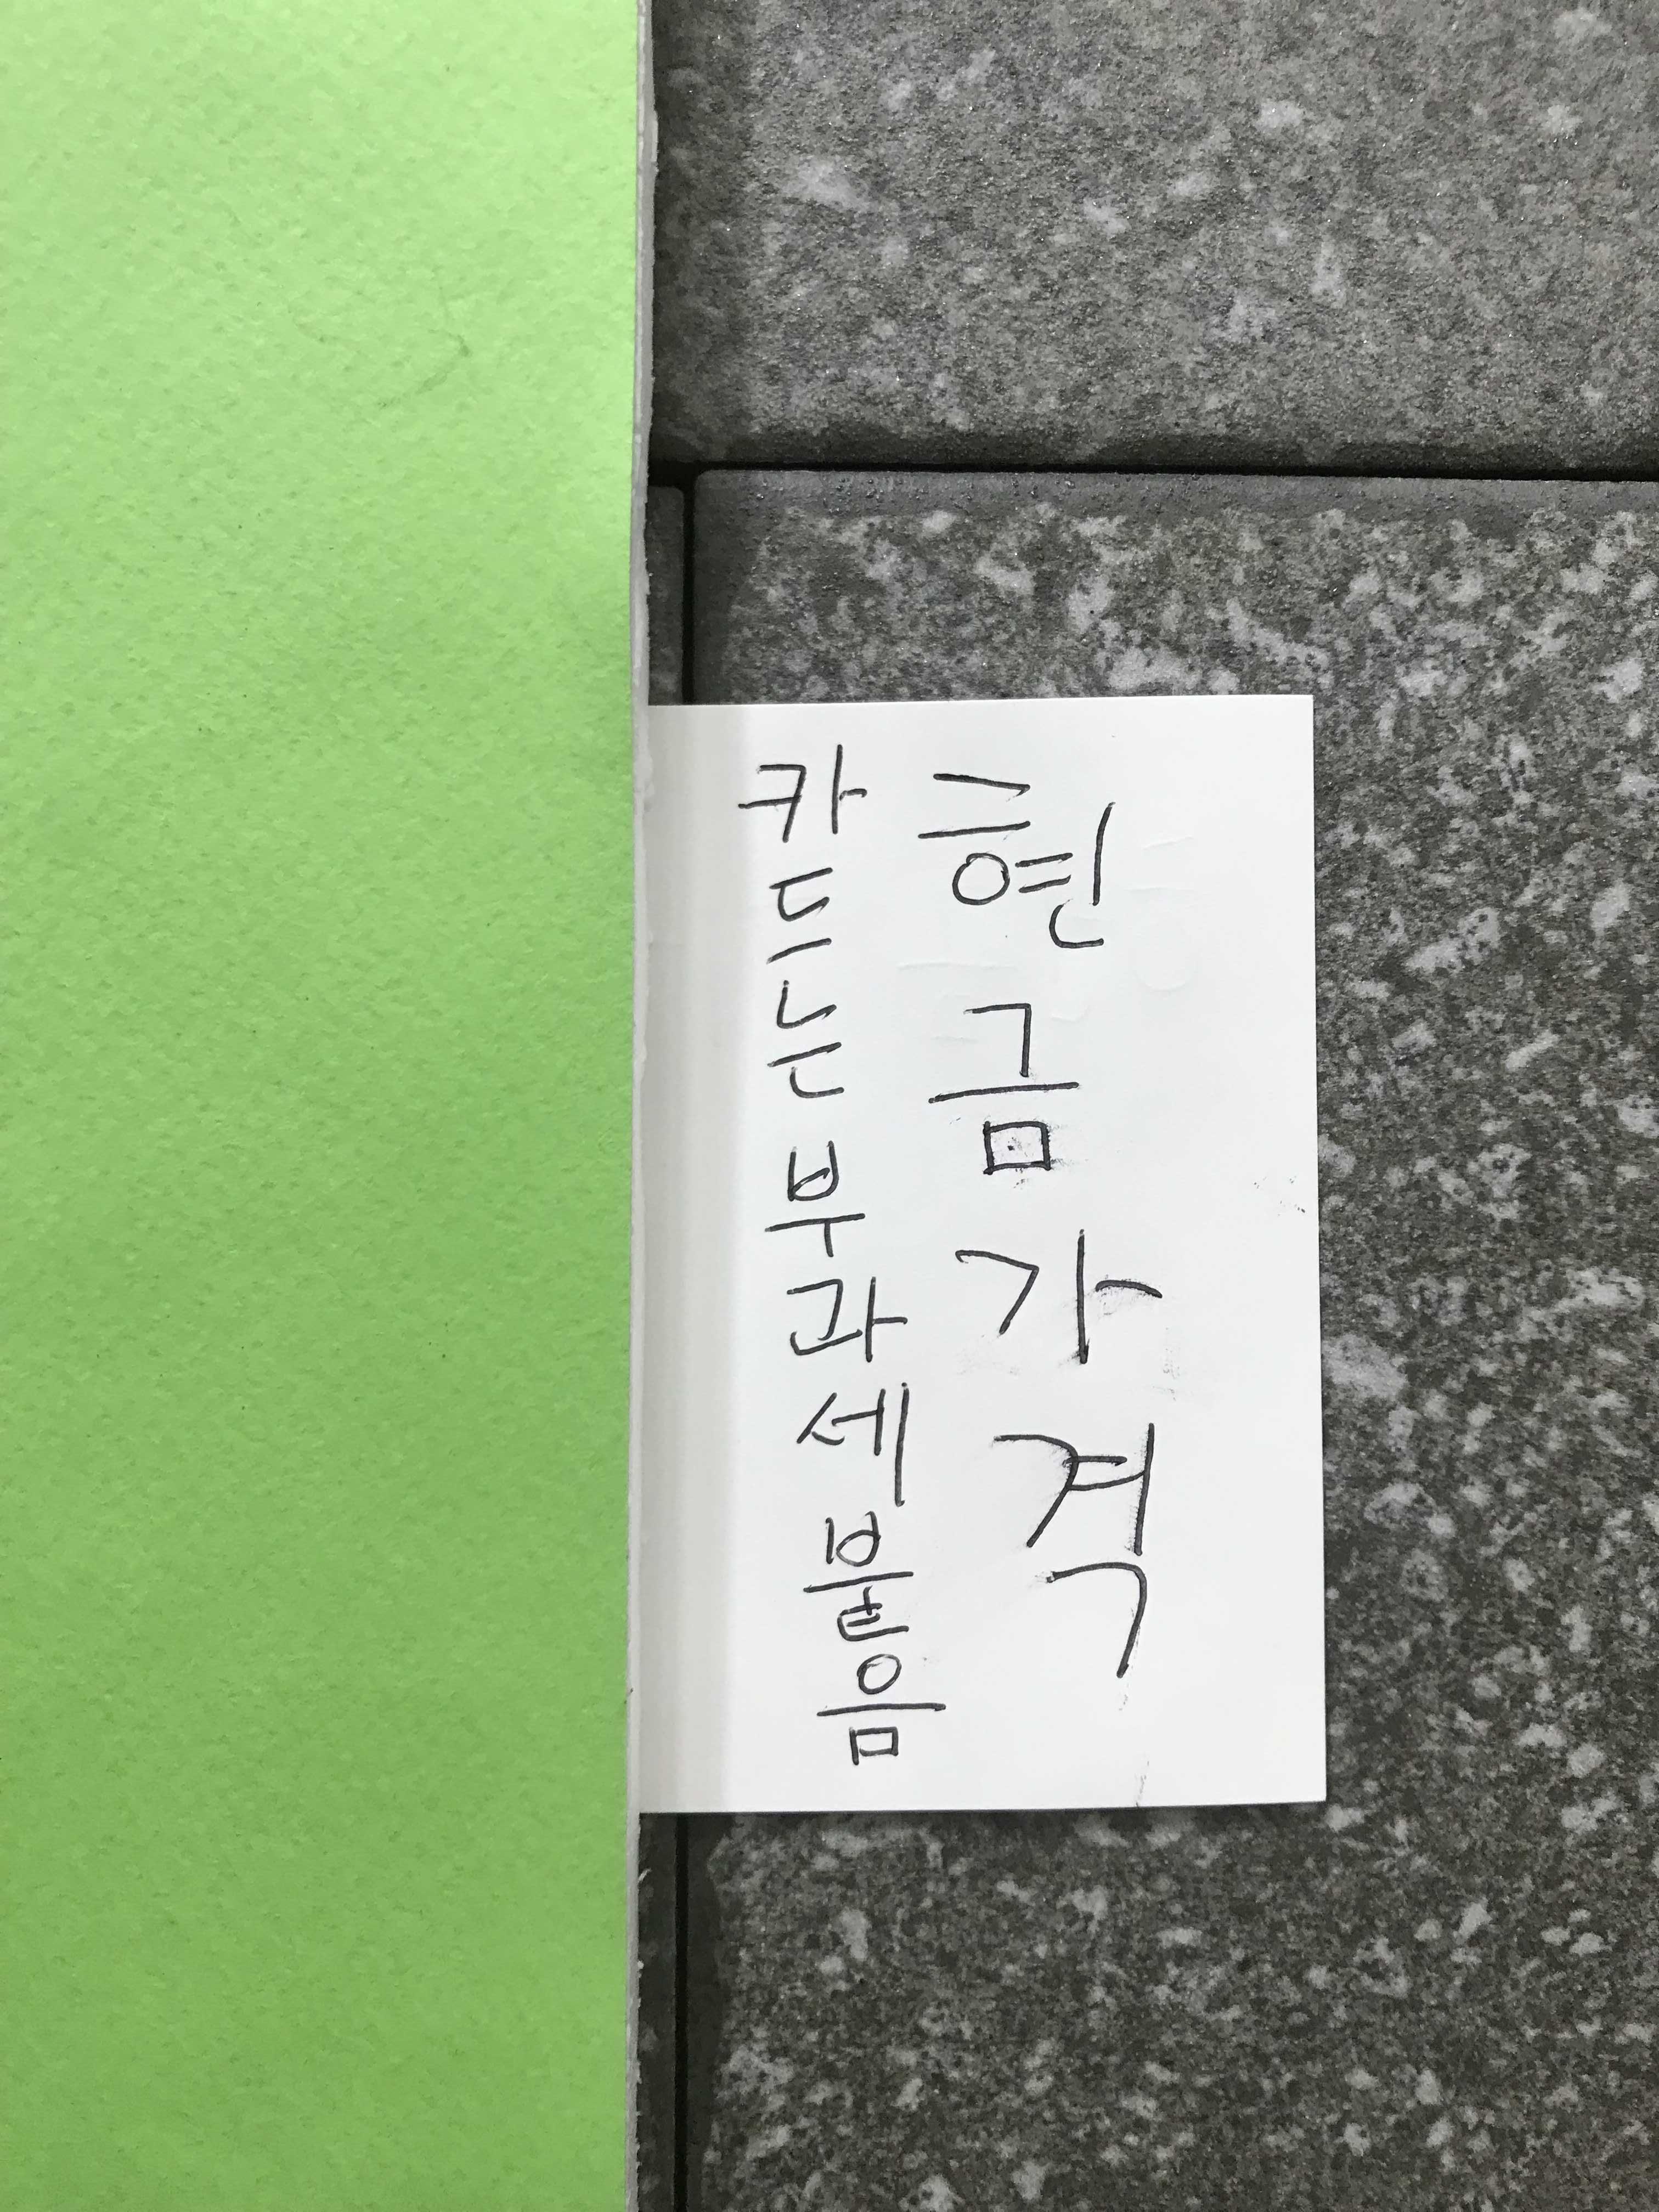 현금가격
카드는 부과세붙음